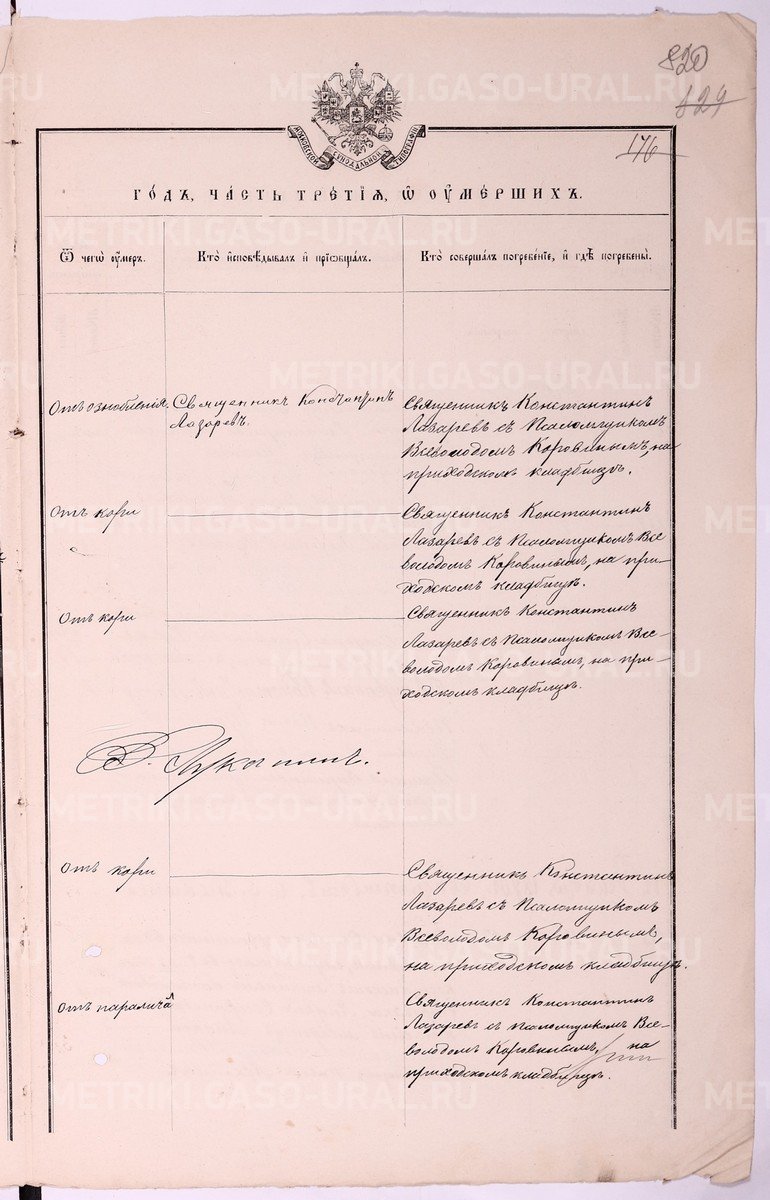 820
824
176
МОСКОВСКОЙ СѴНОДАЛЬНОЙ ТИПОГРАФІИ
ГОДЪ, ЧАСТЬ ТРЕТІЯ, Ѿ ОУМЕРШИХЪ.
Ѿ чегѡ оумеръ.
Кто исповѣдывалъ и приѡбщалъ.
Кто совершалъ погребеніе, и гдѣ погребены.
Отъ ознобленія.
Священникъ Константинъ
Лазаревъ.
Священникъ Константинъ
Лазаревъ съ Псаломщикомъ
Всеволодомъ Коровинымъ, на
приходскомъ кладбищѣ.
Отъ кори
Священникъ Константинъ
Лазаревъ съ Псаломщикомъ Все
володомъ Коровинымъ, на при-
ходскомъ кладбищѣ.
Отъ кори
Священникъ Константинъ
Лазаревъ съ Псаломщикомъ Все-
володомъ Коровинымъ, на при-
ходскомъ кладбищѣ.
Отъ кори
Священникъ Константинъ
Лазаревъ съ Псаломщикомъ
Всеволодомъ Коровинымъ,
на приходскомъ кладбищѣ.
Отъ паралича
Священникъ Константинъ
Лазаревъ съ псаломщикомъ Все-
володомъ Коровинымъ, на
приходскомъ кладбищѣ.
METRIKI.GASO-URAL.RU